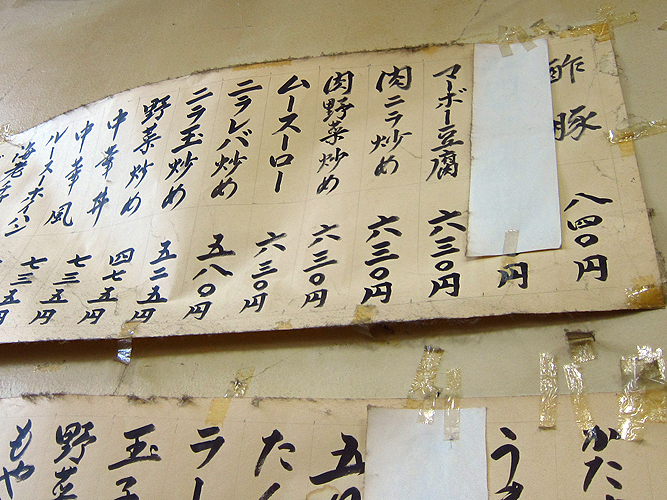 酢豚 八四〇円
円
マーボー豆腐 六三〇円
肉ニラ炒め 六三〇円
肉野菜炒め 六三〇円
ムースーロー 六三〇円
ニラレバ炒め 五八〇円
ニラ玉炒め 五二五円
野菜炒め 四七五円
中華丼 七三五円
中華風 七三五円
かた
う
五
た
ラー
玉子
野菜
もや